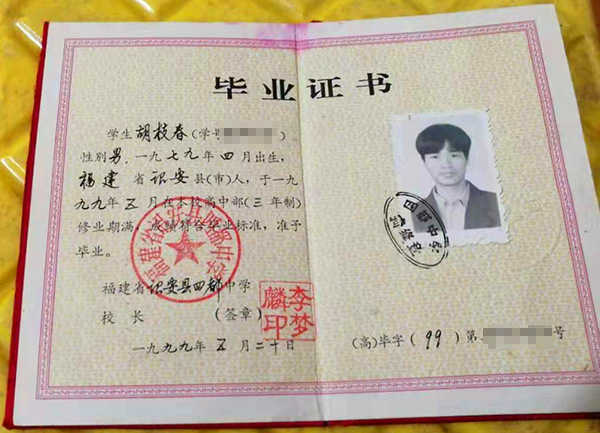 毕业证书
学生胡枝春(学号 )
性别男,一九七九年四月出生,
福建省诏安县(市)人,于一九
九九年五月在本校高中部(三年制)
修业期满,成绩符合毕业标准,准予
毕业。
福建省诏安县四都中学
校长 (签章)
一九九九年五月二十日
福建省诏安县四都中学
李梦麟印
(高)毕字(99)第 号